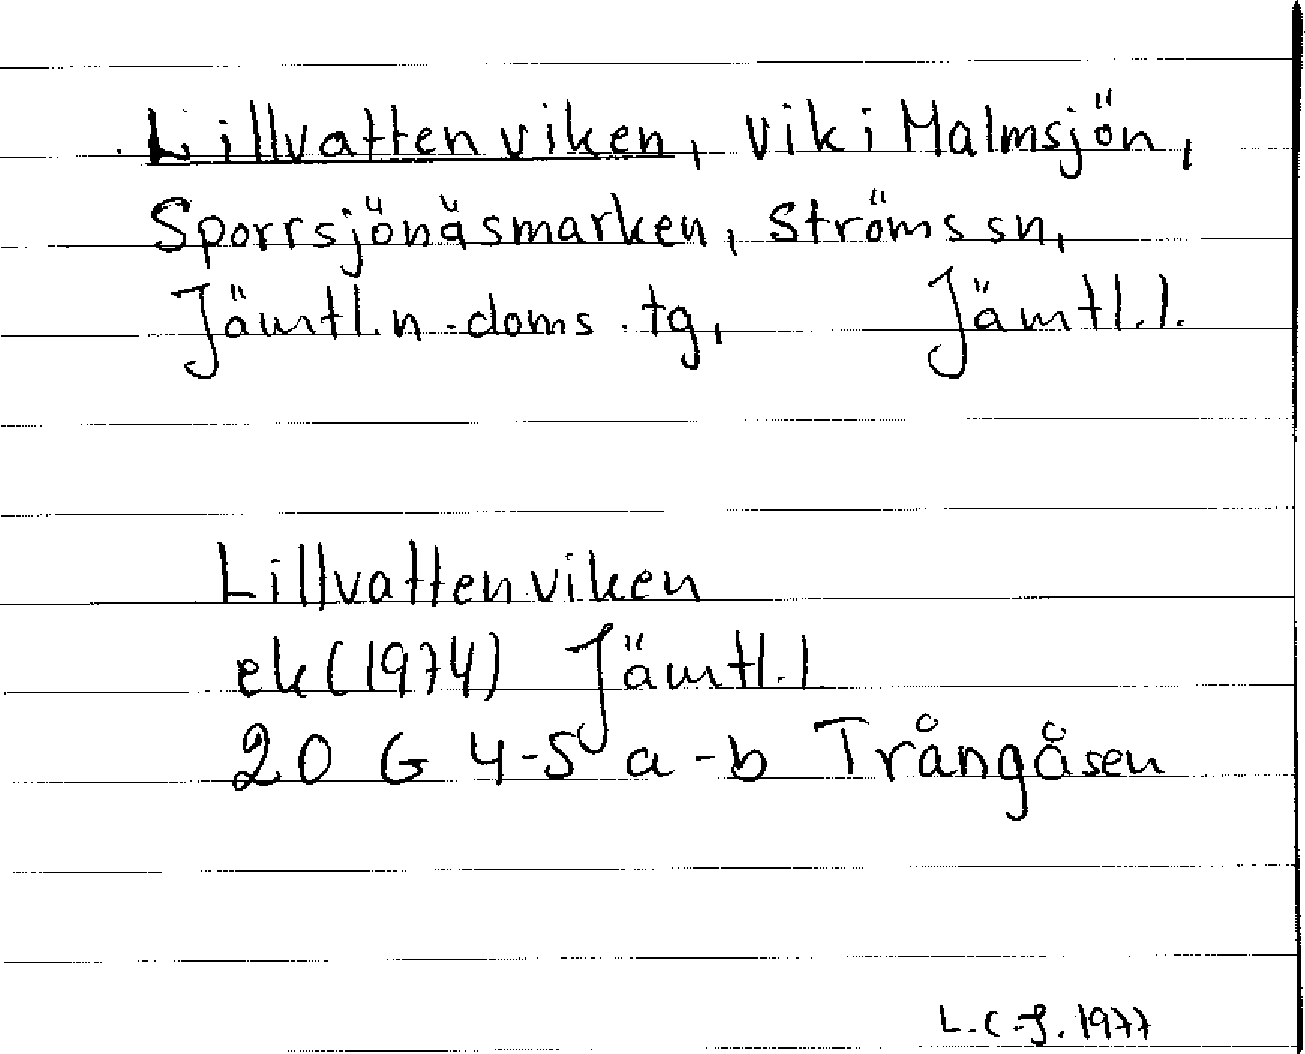 Lillvattenviken, vik i Malmsjön,
Sporrsjönäsmarken, Ströms sn,
Jämtl.n.doms.tg, Jämtl.l.
Lillvattenviken
ek (1974) Jämtl.l
20 G 4-5 a-b Trångåsen
L.C-J. 1977